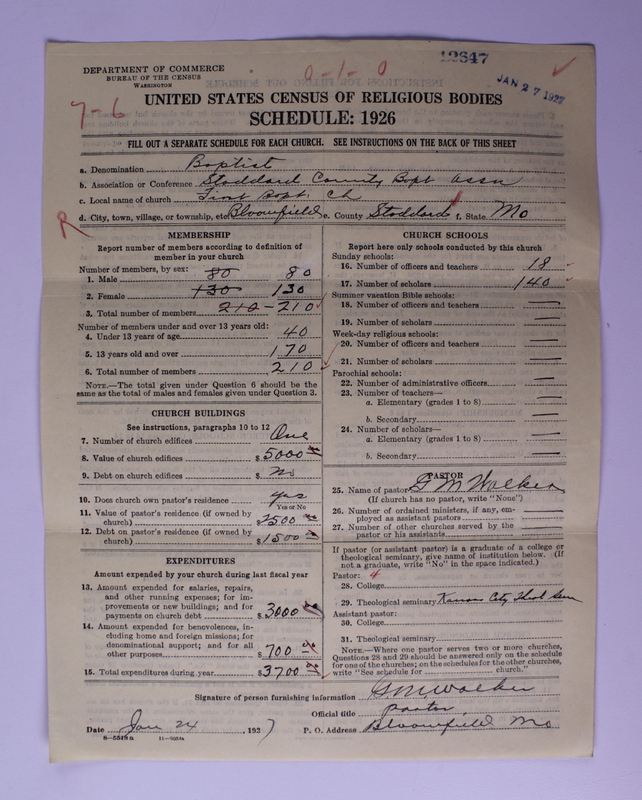 12647
0-1-0
JAN 27 1927
DEPARTMENT OF COMMERCE
BUREAU OF THE CENSUS
WASHINGTON
7-6
UNITED STATES CENSUS OF RELIGIOUS BODIES
SCHEDULE: 1926
FILL OUT A SEPARATE SCHEDULE FOR EACH CHURCH. SEE INSTRUCTIONS ON THE BACK OF THIS SHEET
a. Denomination Baptist
b. Association or Conference Stoddard County Bapt Assn
c. Local name of church First Bapt. Ch
R
d. City, town, village, or township, etc Bloomfield e. County Stoddard f. State Mo
MEMBERSHIP
Report number of members according to definition of
member in your church
Number of members, by sex:
1. Male 80 80
2. Female 130 130
3. Total number of members 210 - 210
Number of members under and over 13 years old:
4. Under 13 years of age 40
5. 13 years old and over 170
6. Total number of members 210
NOTE.—The total given under Question 6 should be the
same as the total of males and females given under Question 3.
CHURCH BUILDINGS
See instructions, paragraphs 10 to 12
7. Number of church edifices One
8. Value of church edifices $ 5000
9. Debt on church edifices $ No
10. Does church own pastor's residence yes
Yes or No
11. Value of pastor's residence (if owned by
church) $ 2500
12. Debt on pastor's residence (if owned by
church) $ 1500
EXPENDITURES
Amount expended by your church during last fiscal year
13. Amount expended for salaries, repairs,
and other running expenses; for im-
provements or new buildings; and for
payments on church debt $ 3000
14. Amount expended for benevolences, in-
cluding home and foreign missions; for
denominational support; and for all
other purposes $ 700
15. Total expenditures during year $ 3700
CHURCH SCHOOLS
Report here only schools conducted by this church
Sunday schools:
16. Number of officers and teachers 18
17. Number of scholars 140
Summer vacation Bible schools:
18. Number of officers and teachers —
19. Number of scholars —
Week-day religious schools:
20. Number of officers and teachers —
21. Number of scholars —
Parochial schools:
22. Number of administrative officers —
23. Number of teachers—
a. Elementary (grades 1 to 8) —
b. Secondary —
24. Number of scholars—
a. Elementary (grades 1 to 8) —
b. Secondary —
PASTOR
25. Name of pastor G M Walker
(If church has no pastor, write "None")
26. Number of ordained ministers, if any, em-
ployed as assistant pastors —
27. Number of other churches served by the
pastor or his assistants —
If pastor (or assistant pastor) is a graduate of a college or
theological seminary, give name of institution below. (If
not a graduate, write "No" in the space indicated.)
Pastor: 4
28. College
29. Theological seminary Kansas City Theol Sem
Assistant pastor:
30. College
31. Theological seminary
NOTE.—Where one pastor serves two or more churches,
Questions 28 and 29 should be answered only on the schedule
for one of the churches; on the schedules for the other churches,
write "See schedule for church."
Signature of person furnishing information G M Walker
Official title pastor
Date Jan 24, 1927 P. O. Address Bloomfield Mo